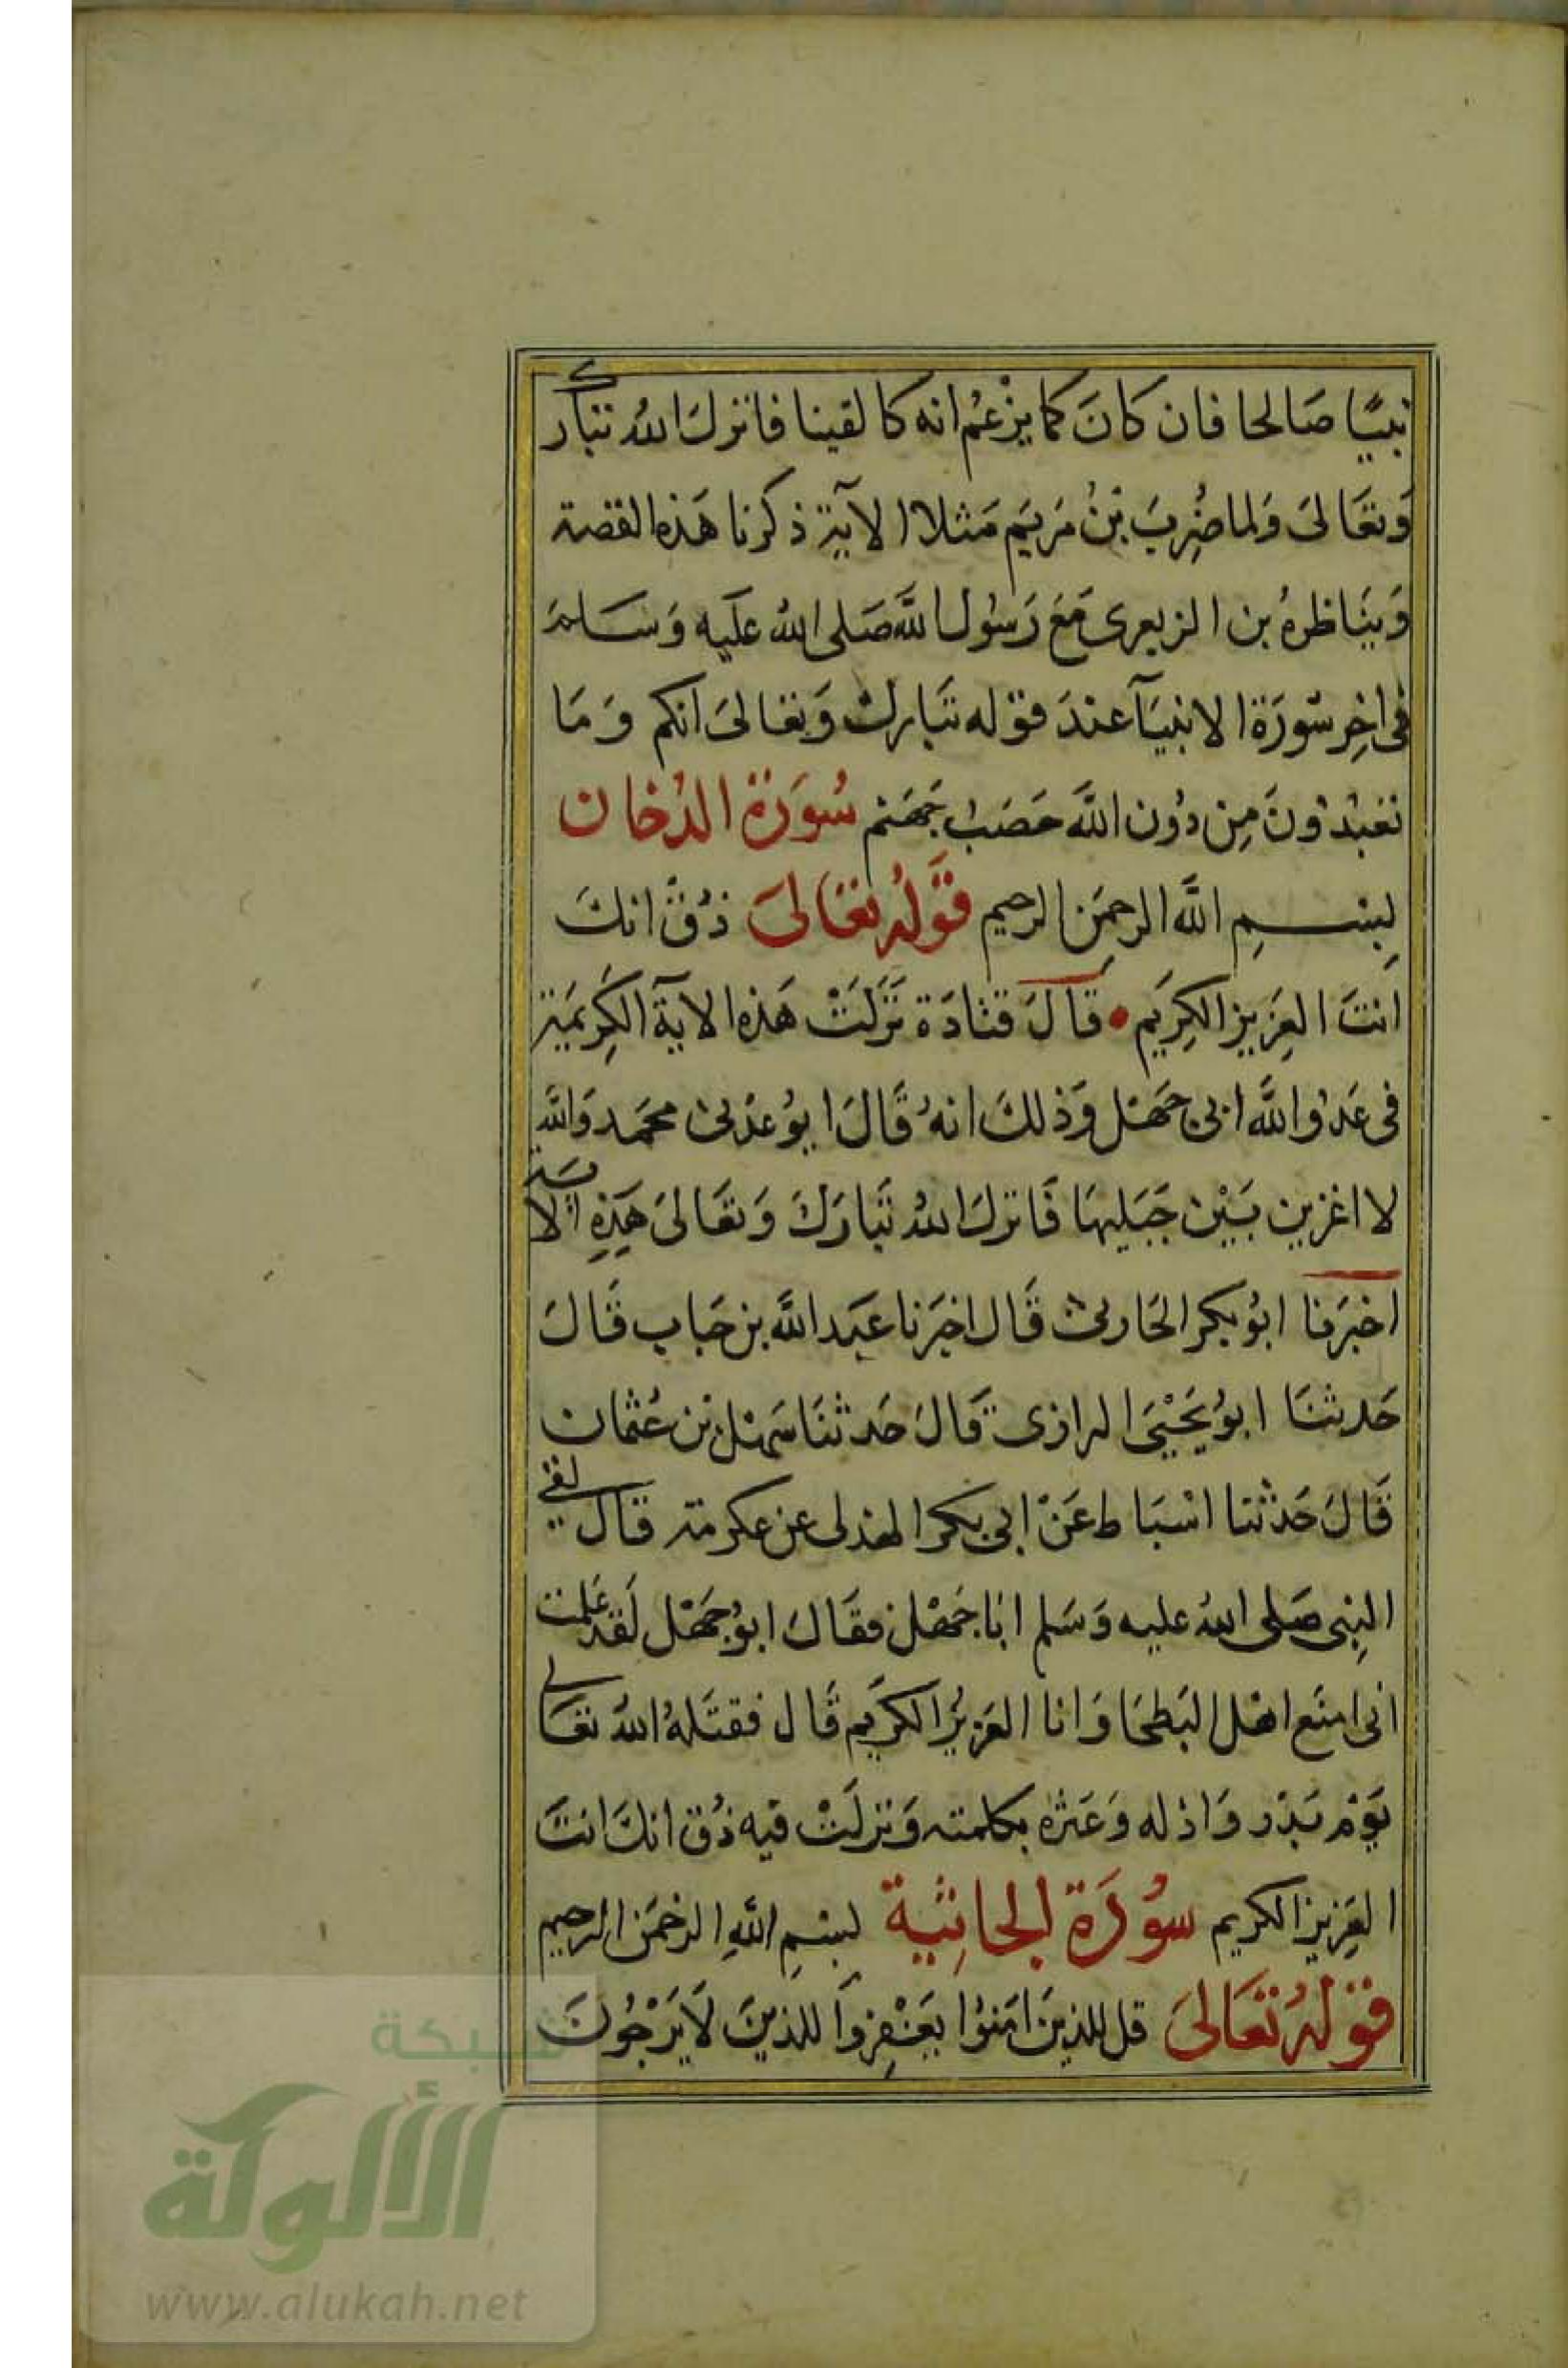 نبيًا صَالحا فان كانَ كما يزْعُم انه كالقينا فانزلَ اللهُ تبارك
وَتعَالىَ وَلما ضُرِبَ بْنُ مَريَم مَثلا الآية ذكرنا هَذه القصة
وَيناظرهُ بن الزبعرى مَعَ رَسُول اللَّه صَلى اللهُ عَليه وَسَلم
فى اخِر سُورَة الانبيَآ عندَ قوْله تَبارك وَتعَالىَ انكم وَمَا
تعبُدُونَ مِن دُون اللَّه حَصَبُ جَهَنم سُورَة الدُخان
بِسْمِ اللَّه الرحمَن الرحيم قَوْلهُ تعَالىَ ذُقْ انكَ
انتَ العَزِيز الكِرَيم • قَالَ قتادَة نَزَلَتْ هَذه الآية الكِريمَة
فى عَدُو اللَّه ابى جَهْل وَذلكَ انهُ قَالَ ايُوعدُنى محَمد وَاللَّه
لا اغزين بَيْن جَبَليهَا فَانزلَ اللهُ تَبَارَكَ وَتعَالىَ هَذِهِ الآية
اخبَرَنا ابُو بكر الحَارثى قَال اخبَرنا عَبَد اللَّه بن حَباب قَالَ
حَدثنَا ابُو يَحْيَى الرازى قَالَ حَدثنَا سَهْل بْن عُثمان
قَالَ حَدثنا اسْبَاط عَنْ ابى بكر الهذلى عن عكرمة قَال لقى
النبِى صَلى اللهُ عليه وَسَلم ابا جَهْل فقَالَ ابُو جَهْل لقَد عَلمت
انى امنَع اهْل البَطحَا وَانا العَزيزُ الكرَيم قَال فقتَلهُ اللهُ تعَالى
يَوْم بَدْر وَاذله وَعَيره بكلمته وَنزلَتْ فيه ذُق انكَ انتَ
العَزِيز الكريم سُورَة الجاثِية بِسْمِ اللَّهِ الرحْمَن الرحيم
قوْلهُ تعَالىَ قل للذينَ امَنوُا يَغْفِرُوا للذينَ لاَ يَرْجُونَ
شبكة
الألوكة
www.alukah.net